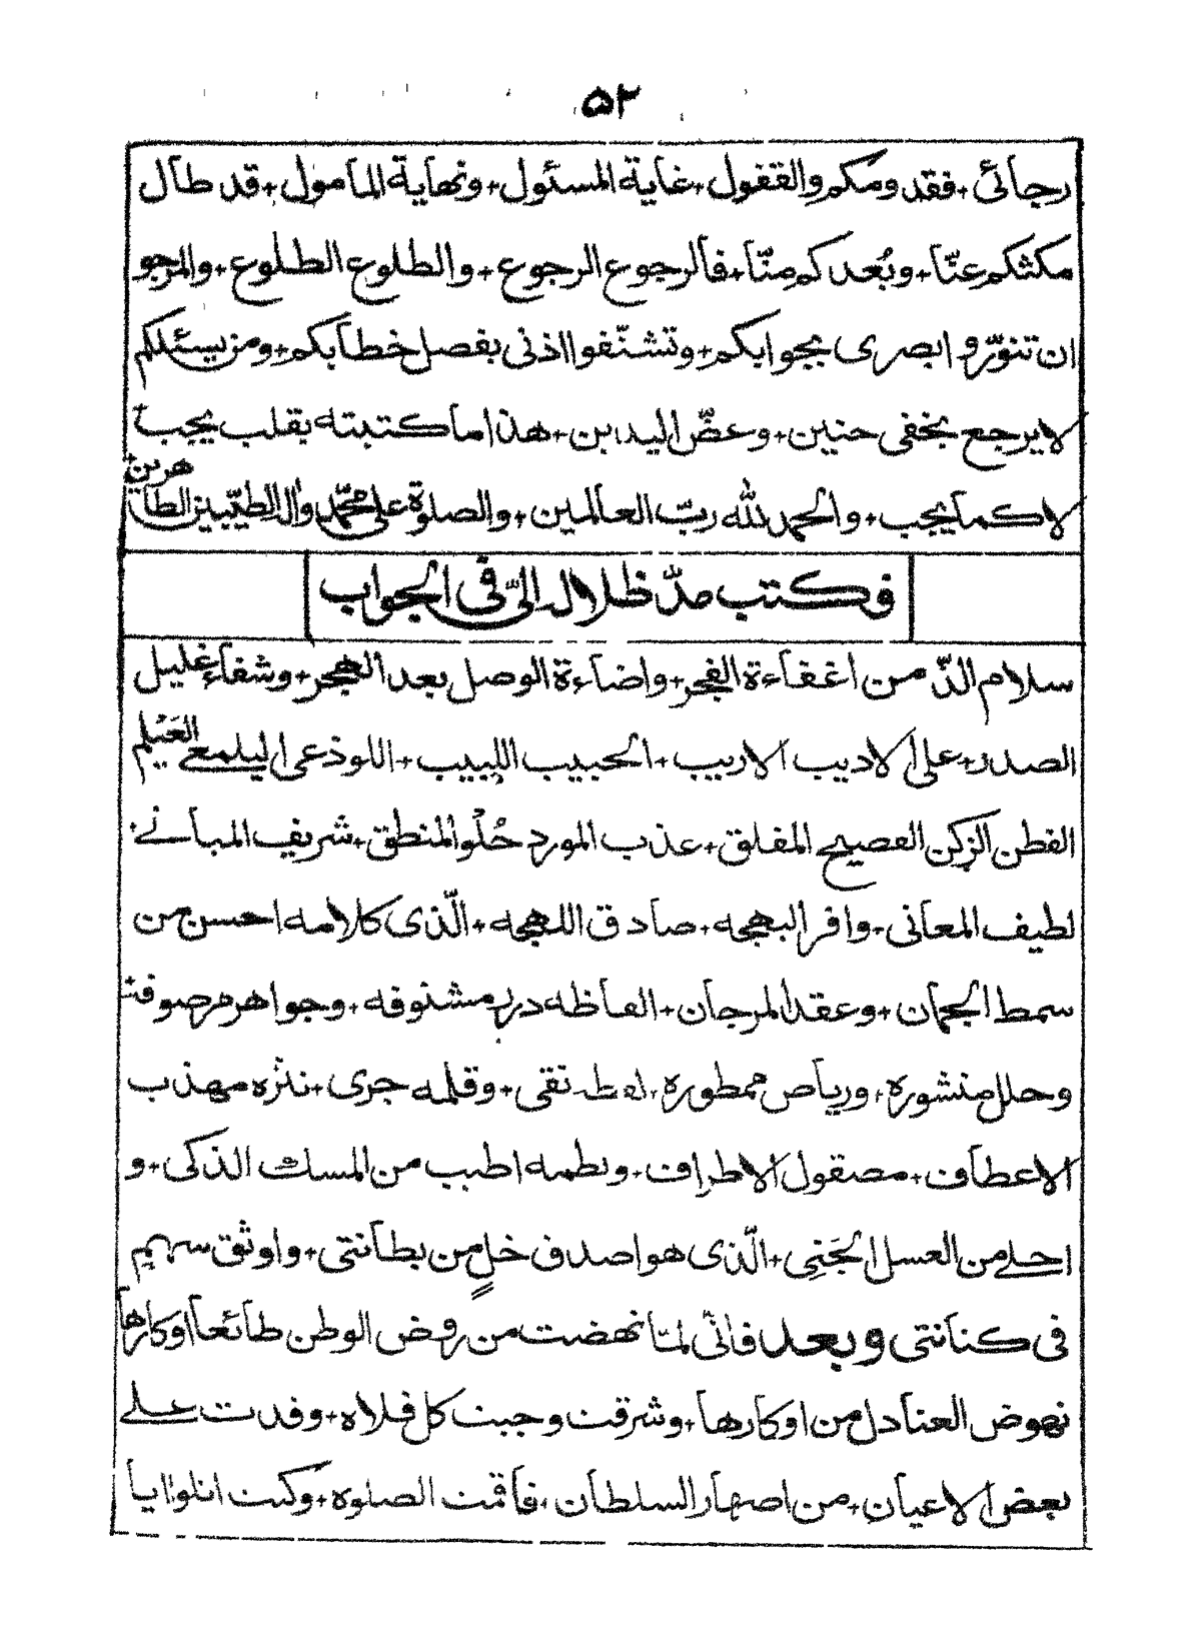 ۵۲
رجائى + فقدومكم والقفول + غاية المسئول + ونهاية المامول + قد طال
مكثكم عنّا + وبُعدكم منّا + فالرجوع الرجوع + والطلوع الطلوع + والمرجو
ان تنوّروا بصرى بجوابكم + وتشنّفوا اذنى بفصل خطابكم + ومن يسئلكم
لا يرجع بخفى حنين + وعضّ اليدين + هذا ما كتبته بقلب يجب +
لا كما يجب + والحمد لله ربّ العالمين + والصلوة على محمّد وآله الطيّبين الطاهرين +
فكتب مدّ ظلاله الىّ فى الجواب
سلام الذّ من اغفاءة الفجر + واضاءة الوصل بعد الهجر + وشفاء غليل
الصدر + على الاديب الاريب + الحبيب اللبيب + اللوذعى اليلمعى العَيْلم
الفطن الزكن الفصيح المفلق + عذب المورد حُلْو المنطق + شريف المبانى +
لطيف المعانى + وافر البهجه + صادق اللهجه + الّذى كلامه احسن من
سمط الجمان + وعقد المرجان + الفاظه درر مشنوفه + وجواهر مرصوفة +
وحلل منشوره + ورياض ممطوره + لفظه نقى + وقلمه جرى + نثره مهذب
الاعطاف + مصقول الاطراف + ونظمه اطيب من المسك الذكى + و
احلى من العسل الجَنِى + الّذى هو اصدق خلٍ من بطانتى + واوثق سهم
فى كنانتى وبعد فانّى لمّا نهضت من روض الوطن طائعا او كارها
نهوض العنادل من اوكارها + وشرقت وجبت كل فلاه + وفدت على
بعض الاعيان + من اصهار السلطان + فاقمت الصلوه + وكنت اتلو ايا